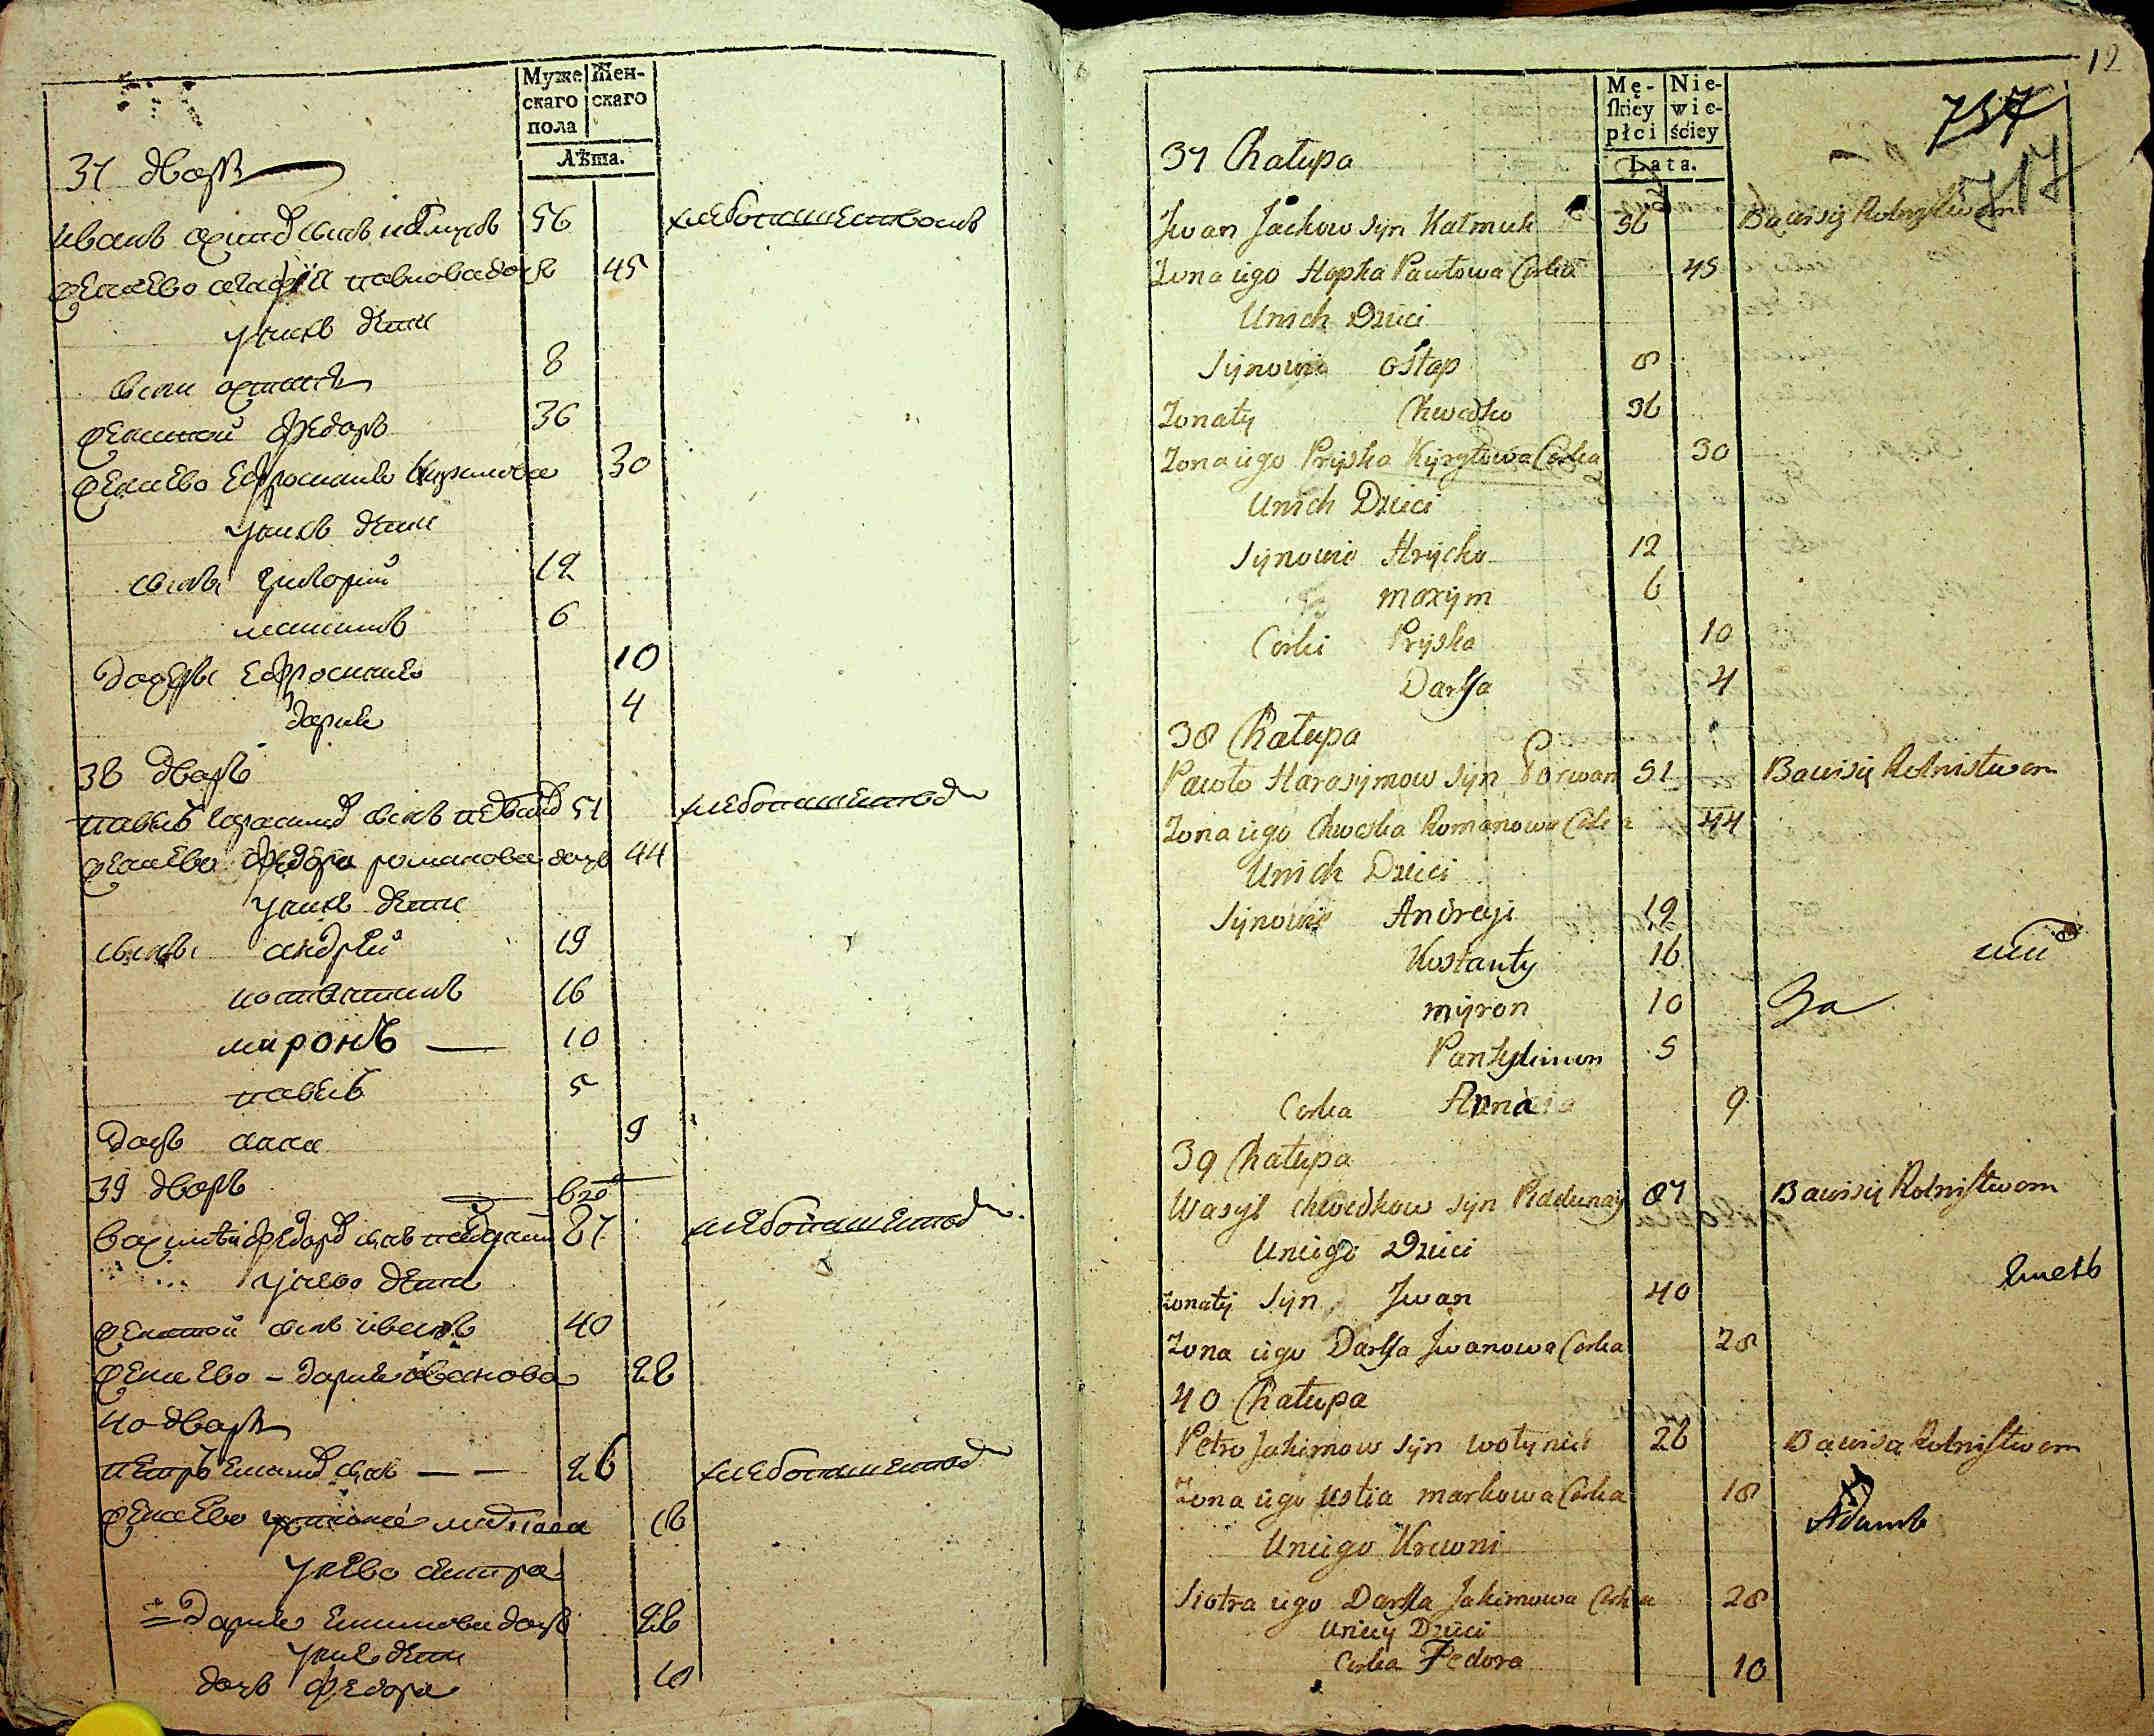 Муже Жен-
скаго скаго
пола
Лѣта.
37 дворъ
иванъ 56 хлебопашествомъ
жена ево павлова дочь 45
у нихъ дети
8
женатой федоръ 36
жена ево ефросинья кирилова 30
у нихъ дети
сыновья григорий 12
максимъ 6
дочери ефросинья 10
дарья 4
38 дворъ
павелъ герасимовъ сынъ 51 хлебопашествомъ
жена ево федора романова дочь 44
у нихъ дети
сыновья андрей 19
костантинъ 16
миронъ — 10
павелъ 5
дочь анна 9
39 дворъ
василей федоровъ сынъ 87 хлебопашествомъ
у него дети
женатой сынъ иванъ 40
жена ево – дарья иванова 28
40 дворъ
петръ сынъ — — 26 хлебопашествомъ
жена ево 18
у него сестра
дарья дочь 28
у ней дети
дочь федора 10
12
Mę- Nie-
skiey wie-
płci ściey
Lata.
737
717
37 Chałupa
Jwan Jackow syn Kałmuk 56 Bawisię Rolnistwem
Zona iego Hapka Pawłowa Corka 45
Unich Dzieci
Synowie Ostap 8
Zonaty Chwedko 36
Zona iego Pryska Kyryłowa Corka 30
Unich Dzieci
Synowie Hrycko 12
Maxym 6
Corki Pryska 10
Darya 4
38 Chałupa
Pawło Harasymow syn 51 Bawisię Rolnistwem
Zona iego Chweska Romanowa Corka 44
Unich Dzieci
Synowie Andreyi 19
Kostanty 16
Myron 10 За
Pantylimon 5
Corka Anna 9
39 Chałupa
Wasyl Chwedkow syn Piddunay 87 Bawisię Rolnistwem
Uniego Dzieci
Zonaty Syn Jwan 40
Zona iego Darya Jwanowa Corka 28
40 Chałupa
Petro Jakimow syn Wołyniec 26 Bawisia Rolnistwem
Zona iego Ustia Markowa Corka 18
Uniego Krewni
Siotra iego Darya Jakimowa Corka 28
Uniey Dzieci
Corka Fedora 10